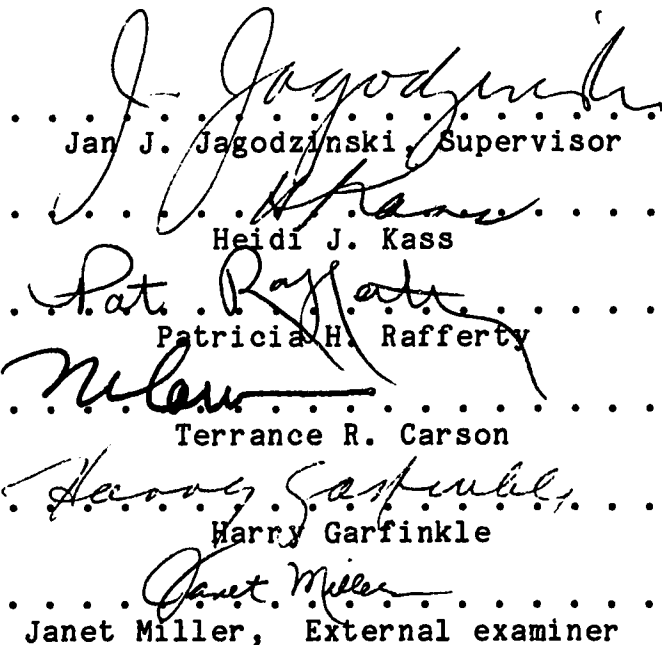 J Jagodzinski
Jan J. Jagodzinski, Supervisor
H Kass
Heidi J. Kass
Pat Rafferty
Patricia H. Rafferty
Terrance R. Carson
Harry Garfinkle
Harry Garfinkle
Janet Miller
Janet Miller, External examiner